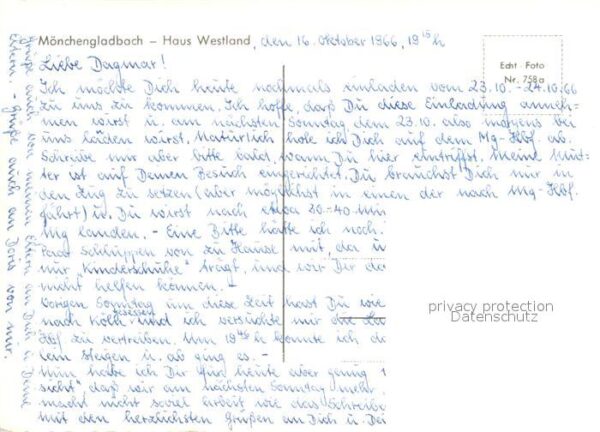 Mönchengladbach – Haus Westland, den 16. Oktober 1966, 19¹⁵ h
Echt Foto
Nr. 758a
Liebe Dagmar!
Ich möchte Dich heute nochmals einladen vom 23.10. – 24.10.66
zu uns zu kommen. Ich hoffe, daß Du diese Einladung anneh-
men wirst u. am nächsten Sonntag dem 23.10. also morgens bei
uns läuten wirst. Natürlich hole ich Dich auf dem Mg-Hbf. ab.
Schreibe mir aber bitte bald, wann Du hier eintriffst. Meine Mut-
ter ist auf Deinen Besuch eingerichtet. Du brauchst Dich nur in
den Zug zu setzen (aber möglichst in einen der nach Mg-Hbf.
fährt) u. Du wirst nach etwa 30-40 Min
Mg landen. – Eine Bitte hätte ich noch.
Paar Schluppen von zu Hause mit, da u
nur "Kinderschuhe" tragt, und wir Dir da
nicht helfen können. –
Vorigen Sonntag um diese Zeit hast Du wie
nach Köln und ich versuchte mir die
Hbf zu vertreiben. Um 19 h konnte ich
steigen u. ab ging es. –
Nun habe ich Dir für heute aber genug
sicht", daß wir am nächsten Sonntag mehr
macht nicht soviel Arbeit wie das Schreibe
mit den herzlichsten Grüßen an Dich u. Dei
Grüße auch von meinen Eltern an Dich u. Deine
Eltern – Grüße auch an Doris von mir.
privacy protection
Datenschutz